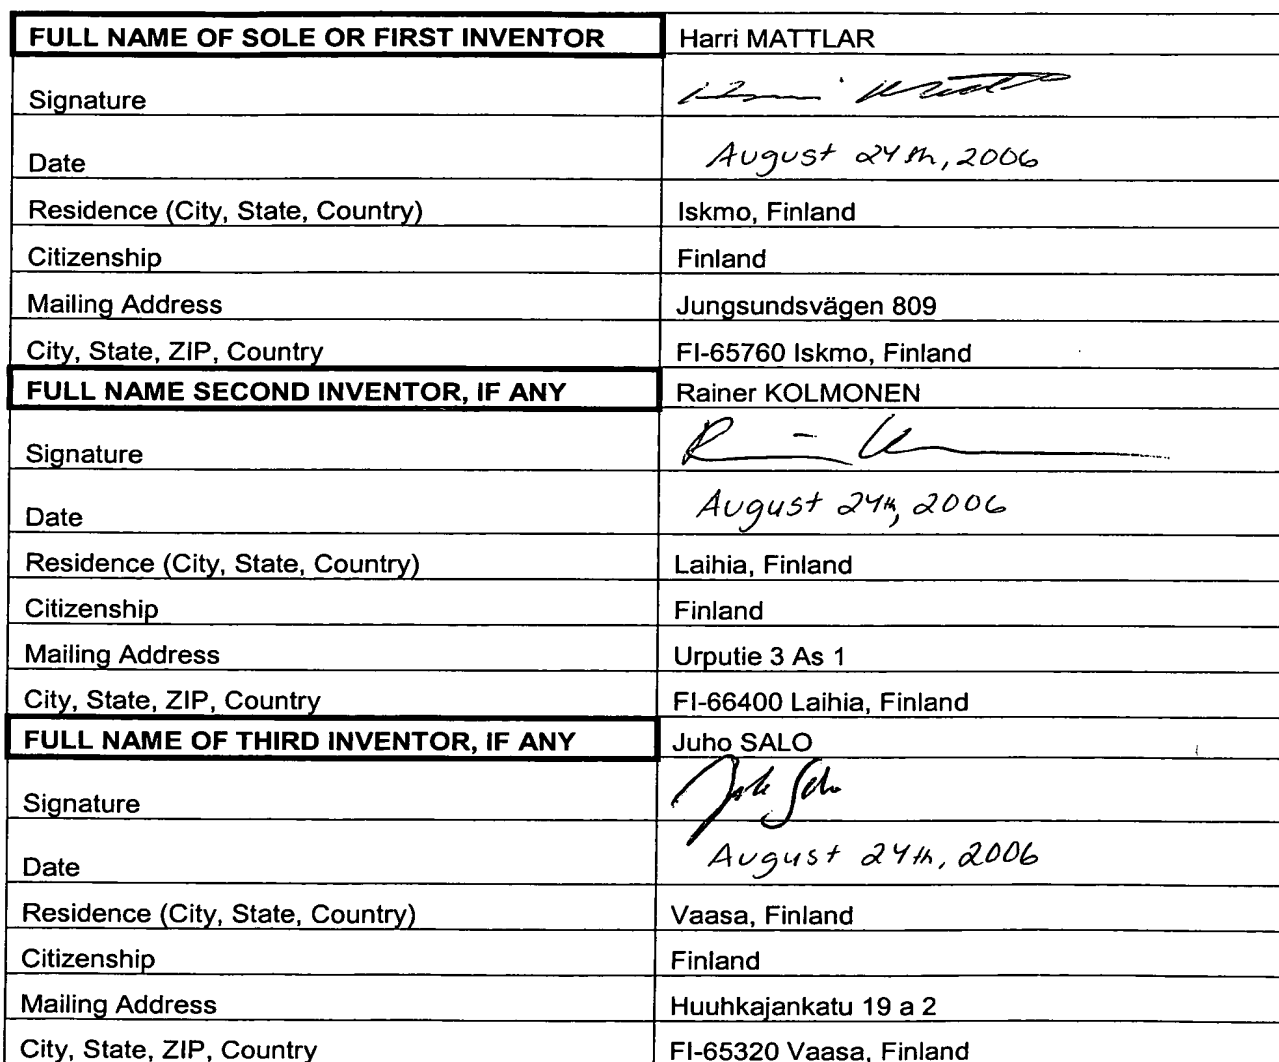 FULL NAME OF SOLE OR FIRST INVENTOR Harri MATTLAR
Signature
Date August 24th, 2006
Residence (City, State, Country) Iskmo, Finland
Citizenship Finland
Mailing Address Jungsundsvägen 809
City, State, ZIP, Country FI-65760 Iskmo, Finland
FULL NAME SECOND INVENTOR, IF ANY Rainer KOLMONEN
Signature
Date August 24th, 2006
Residence (City, State, Country) Laihia, Finland
Citizenship Finland
Mailing Address Urputie 3 As 1
City, State, ZIP, Country FI-66400 Laihia, Finland
FULL NAME OF THIRD INVENTOR, IF ANY Juho SALO
Signature
Date August 24th, 2006
Residence (City, State, Country) Vaasa, Finland
Citizenship Finland
Mailing Address Huuhkajankatu 19 a 2
City, State, ZIP, Country FI-65320 Vaasa, Finland